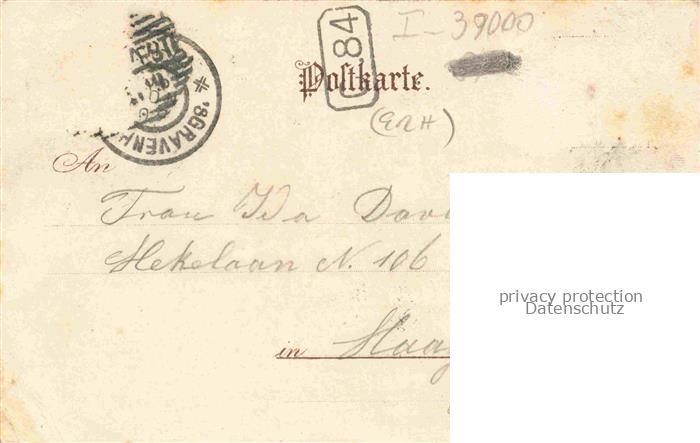 I-39000
84
Postkarte.
'SGRAVENH
An
Frau Ida Dav
Hekelaan N. 106
in Haag
privacy protection
Datenschutz